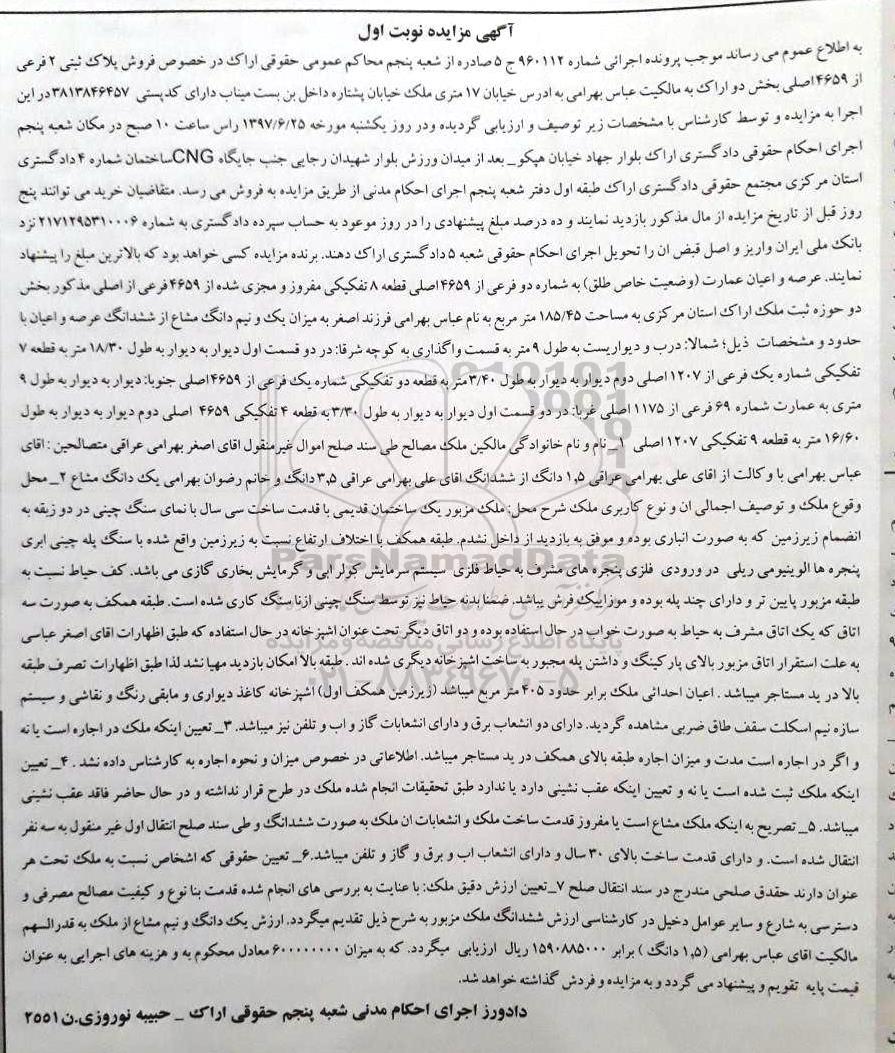 آگهی مزایده نوبت اول
به اطلاع عموم می رساند موجب پرونده اجرائی شماره ۹۶۰۱۱۲ ج ۵ صادره از شعبه پنجم محاکم عمومی حقوقی اراک در خصوص فروش پلاک ثبتی ۲ فرعی
از ۴۶۵۹ اصلی بخش دو اراک به مالکیت عباس بهرامی به ادرس خیابان ۱۷ متری ملک خیابان پشتاره داخل بن بست میناب دارای کدپستی ۳۸۱۳۸۴۶۴۵۷ در این
اجرا به مزایده و توسط کارشناس با مشخصات زیر توصیف و ارزیابی گردیده ودر روز یکشنبه مورخه ۱۳۹۷/۶/۲۵ راس ساعت ۱۰ صبح در مکان شعبه پنجم
اجرای احکام حقوقی دادگستری اراک بلوار جهاد خیابان هپکو_ بعد از میدان ورزش بلوار شهیدان رجایی جنب جایگاه CNG ساختمان شماره ۴ دادگستری
استان مرکزی مجتمع حقوقی دادگستری اراک طبقه اول دفتر شعبه پنجم اجرای احکام مدنی از طریق مزایده به فروش می رسد. متقاضیان خرید می توانند پنج
روز قبل از تاریخ مزایده از مال مذکور بازدید نمایند و ده درصد مبلغ پیشنهادی را در روز موعود به حساب سپرده دادگستری به شماره ۲۱۷۱۲۹۵۳۱۰۰۰۶ نزد
بانک ملی ایران واریز و اصل قبض ان را تحویل اجرای احکام حقوقی شعبه ۵ دادگستری اراک دهند. برنده مزایده کسی خواهد بود که بالاترین مبلغ را پیشنهاد
نمایند. عرصه و اعیان عمارت (وضعیت خاص طلق) به شماره دو فرعی از ۴۶۵۹ اصلی قطعه ۸ تفکیکی مفروز و مجزی شده از ۴۶۵۹ فرعی از اصلی مذکور بخش
دو حوزه ثبت ملک اراک استان مرکزی به مساحت ۱۸۵/۴۵ متر مربع به نام عباس بهرامی فرزند اصغر به میزان یک و نیم دانگ مشاع از ششدانگ عرصه و اعیان با
حدود و مشخصات ذیل؛ شمالا: درب و دیواریست به طول ۹ متر به قسمت واگذاری به کوچه شرقا: در دو قسمت اول دیوار به دیوار به طول ۱۸/۳۰ متر به قطعه ۷
تفکیکی شماره یک فرعی از ۱۲۰۷ اصلی دوم دیوار به دیوار به طول ۳/۴۰ متر به قطعه دو تفکیکی شماره یک فرعی از ۴۶۵۹ اصلی جنوبا: دیوار به دیوار به طول ۹
متری به عمارت شماره ۶۹ فرعی از ۱۱۷۵ اصلی غربا: در دو قسمت اول دیوار به دیوار به طول ۳/۳۰ به قطعه ۴ تفکیکی ۴۶۵۹ اصلی دوم دیوار به دیوار به طول
۱۶/۶۰ متر به قطعه ۹ تفکیکی ۱۲۰۷ اصلی ۱_ نام و نام خانوادگی مالکین ملک مصالح طی سند صلح اموال غیرمنقول اقای اصغر بهرامی عراقی متصالحین : اقای
عباس بهرامی با وکالت از اقای علی بهرامی عراقی ۱,۵ دانگ از ششدانگ اقای علی بهرامی عراقی ۳,۵ دانگ و خانم رضوان بهرامی یک دانگ مشاع ۲_ محل
وقوع ملک و توصیف اجمالی ان و نوع کاربری ملک شرح محل: ملک مزبور یک ساختمان قدیمی با قدمت ساخت سی سال با نمای سنگ چینی در دو زبقه به
انضمام زیرزمین که به صورت انباری بوده و موفق به بازدید از داخل نشدم. طبقه همکف با اختلاف ارتفاع نسبت به زیرزمین واقع شده با سنگ پله چینی ابری
پنجره ها الوینیومی ریلی در ورودی فلزی پنجره های مشرف به حیاط فلزی سیستم سرمایش کولر ابی و گرمایش بخاری گازی می باشد. کف حیاط نسبت به
طبقه مزبور پایین تر و دارای چند پله بوده و موزاییک فرش یباشد. ضمنا بدنه حیاط نیز توسط سنگ چینی ازنا سنگ کاری شده است. طبقه همکف به صورت سه
اتاق که یک اتاق مشرف به حیاط به صورت خواب در حال استفاده بوده و دو اتاق دیگر تحت عنوان اشپزخانه در حال استفاده که طبق اظهارات اقای اصغر عباسی
به علت استقرار اتاق مزبور بالای پارکینگ و داشتن پله مجبور به ساخت اشپزخانه دیگری شده اند . طبقه بالا امکان بازدید مهیا نشد لذا طبق اظهارات تصرف طبقه
بالا در ید مستاجر میباشد . اعیان احداثی ملک برابر حدود ۴۰۵ متر مربع میباشد (زیرزمین همکف اول) اشپزخانه کاغذ دیواری و مابقی رنگ و نقاشی و سیستم
سازه نیم اسکلت سقف طاق ضربی مشاهده گردید. دارای دو انشعاب برق و دارای انشعابات گاز و اب و تلفن نیز میباشد. ۳_ تعیین اینکه ملک در اجاره است یا نه
و اگر در اجاره است مدت و میزان اجاره طبقه بالای همکف در ید مستاجر میباشد. اطلاعاتی در خصوص میزان و نحوه اجاره به کارشناس داده نشد . ۴_ تعیین
اینکه ملک ثبت شده است یا نه و تعیین اینکه عقب نشینی دارد یا ندارد طبق تحقیقات انجام شده ملک در طرح قرار نداشته و در حال حاضر فاقد عقب نشینی
میباشد. ۵_ تصریح به اینکه ملک مشاع است یا مفروز قدمت ساخت ملک و انشعابات ان ملک به صورت ششدانگ و طی سند صلح انتقال اول غیر منقول به سه نفر
انتقال شده است. و دارای قدمت ساخت بالای ۳۰ سال و دارای انشعاب اب و برق و گاز و تلفن میباشد. ۶_ تعیین حقوقی که اشخاص نسبت به ملک تحت هر
عنوان دارند حقدق صلحی مندرج در سند انتقال صلح ۷_ تعیین ارزش دقیق ملک: با عنایت به بررسی های انجام شده قدمت بنا نوع و کیفیت مصالح مصرفی و
دسترسی به شارع و سایر عوامل دخیل در کارشناسی ارزش ششدانگ ملک مزبور به شرح ذیل تقدیم میگردد. ارزش یک دانگ و نیم مشاع از ملک به قدرالسهم
مالکیت اقای عباس بهرامی (۱,۵ دانگ ) برابر ۱۵۹۰۸۸۵۰۰۰ ریال ارزیابی میگردد. که به میزان ۶۰۰۰۰۰۰۰۰ معادل محکوم به و هزینه های اجرایی به عنوان
قیمت پایه تقویم و پیشنهاد می گردد و به مزایده و فردش گذاشته خواهد شد.
دادورز اجرای احکام مدنی شعبه پنجم حقوقی اراک _ حبیبه نوروزی.ن ۲۵۵۱
ParsNamadData
پایگاه اطلاع رسانی مناقصه و مزایده
۰۲۱-۸۸۳۴۹۶۷۰-۵